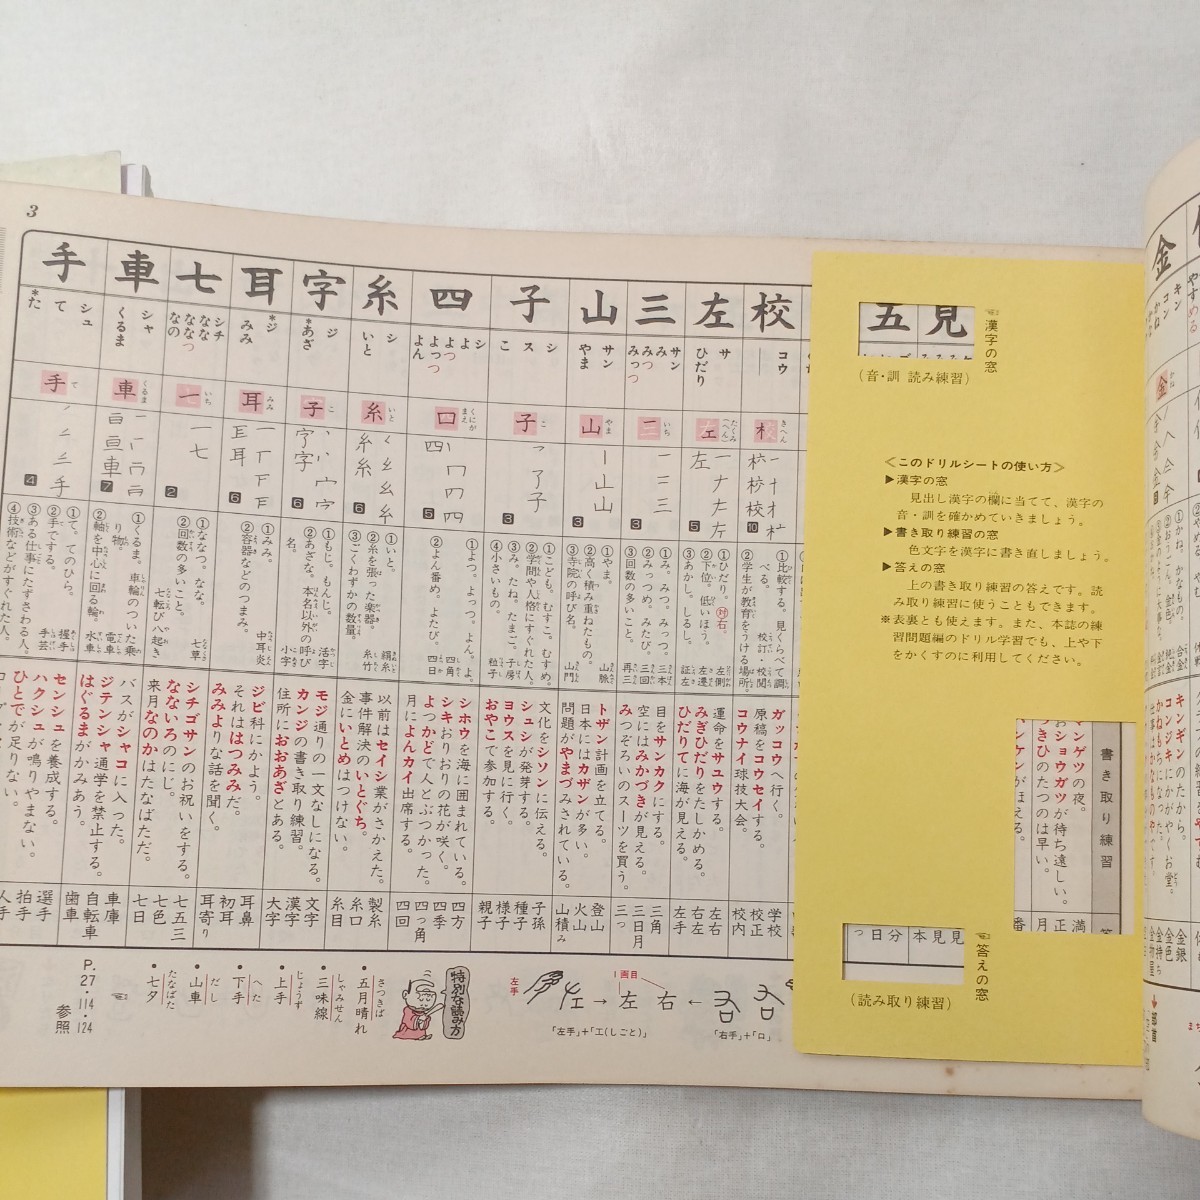 3
校
コウ
｜
校
きへん
10
①比較する。見くらべて調べる。
校訂・校閲
②学生が教育をうける場所。
ガッコウへ行く。
原稿をコウセイする。
コウナイ球技大会。
学校
校正
校内
左
サ
ひだり
左
たくみへん
5
①ひだり。対右。
左側
②下位。低いほう。
左遷
③あかし。しるし。
証左
運命をサユウする。
みぎひだりをたしかめる。
ひだりてに海が見える。
左右
右左
左手
三
サン
み
みつ
みっつ
三
いち
3
①み。みつ。みっつ。
三本
②みっつめ。みたび。
三回
③回数の多いこと。
再三
目をサンカクにする。
空にはみかづきが見える。
みつぞろいのスーツを買う。
三角
三日月
三つ
山
サン
やま
山
やま
3
①やま。
山脈
②高く積み重ねたもの。
③寺院の呼び名。
山門
トザン計画を立てる。
日本にはカザンが多い。
問題がやまづみされている。
登山
火山
山積み
子
シ
ス
こ
子
こ
3
①こども。むすこ。むすめ。
②学問や人格にすぐれた人。
③み。たね。たまご。
子房
④小さいもの。
粒子
文化をシソンに伝える。
シュシが発芽する。
ヨウスを見に行く。
おやこで参加する。
子孫
種子
様子
親子
四
シ
よ
よつ
よっつ
よん
口
くにがまえ
5
①よん。よつ。よっつ。
四角
②よん番め。よたび。
四日
シホウを海に囲まれている。
シキおりおりの花が咲く。
よつかどで人とぶつかった。
月によんカイ出席する。
四方
四季
四つ角
四回
糸
シ
いと
糸
いと
6
①いと。
絹糸
②糸を張った楽器。
③ごくわずかの数量。
糸竹
以前はセイシ業がさかえた。
事件解決のいとぐち。
金にいとめはつけない。
製糸
糸口
糸目
字
ジ
*あざ
子
こ
6
①もじ。もんじ。
活字
②あざな。本名以外の呼び名。
小字
モジ通りの一文なしになる。
カンジの書き取り練習。
住所におおあざとある。
文字
漢字
大字
耳
*ジ
みみ
耳
みみ
6
①みみ。
中耳炎
②容器などのつまみ。
ジビ科にかよう。
それははつみみだ。
みみよりな話を聞く。
耳鼻
初耳
耳寄り
七
シチ
なな
ななつ
なの
一
いち
2
①ななつ。なな。
七草
②回数の多いこと。
七転び八起き
シチゴサンのお祝いをする。
なないろのにじ。
来月なのかはたなばただ。
七五三
七色
七日
車
シャ
くるま
車
くるま
7
①くるま。車輪のついた乗り物。
電車
②軸を中心に回る輪。
水車
バスがシャコに入った。
ジテンシャ通学を禁止する。
はぐるまがかみあう。
車庫
自転車
歯車
手
シュ
て
*た
手
て
4
①て。てのひら。
握手
②手でする。
③ある仕事にたずさわる人。
手芸
④技術などがすぐれた人。
センシュを養成する。
ハクシュが鳴りやまない。
ひとでが足りない。
選手
拍手
人手
左手
1画目
左
右
「左手」+「エ(しごと)」
「右手」+「ロ」
特別な読み方
•五月晴れ
さつきば
•三味線
しゃみせん
•上手
じょうず
•下手
へた
•山車
だし
•七夕
たなばた
P.27・114・124参照
見
五
漢字の窓
(音・訓 読み練習)
<このドリルシートの使い方>
▶漢字の窓
見出し漢字の欄に当てて、漢字の
音・訓を確かめていきましょう。
▶書き取り練習の窓
色文字を漢字に書き直しましょう。
▶答えの窓
上の書き取り練習の答えです。読
み取り練習に使うこともできます。
※表裏とも使えます。また、本誌の練
習問題編のドリル学習でも、上や下
をかくすのに利用してください。
書き取り練習
マンゲツの夜。
おショウガツが待ち遠しい。
つきひのたつのは早い。
答えの窓
(読み取り練習)
金
キン
コン
かね